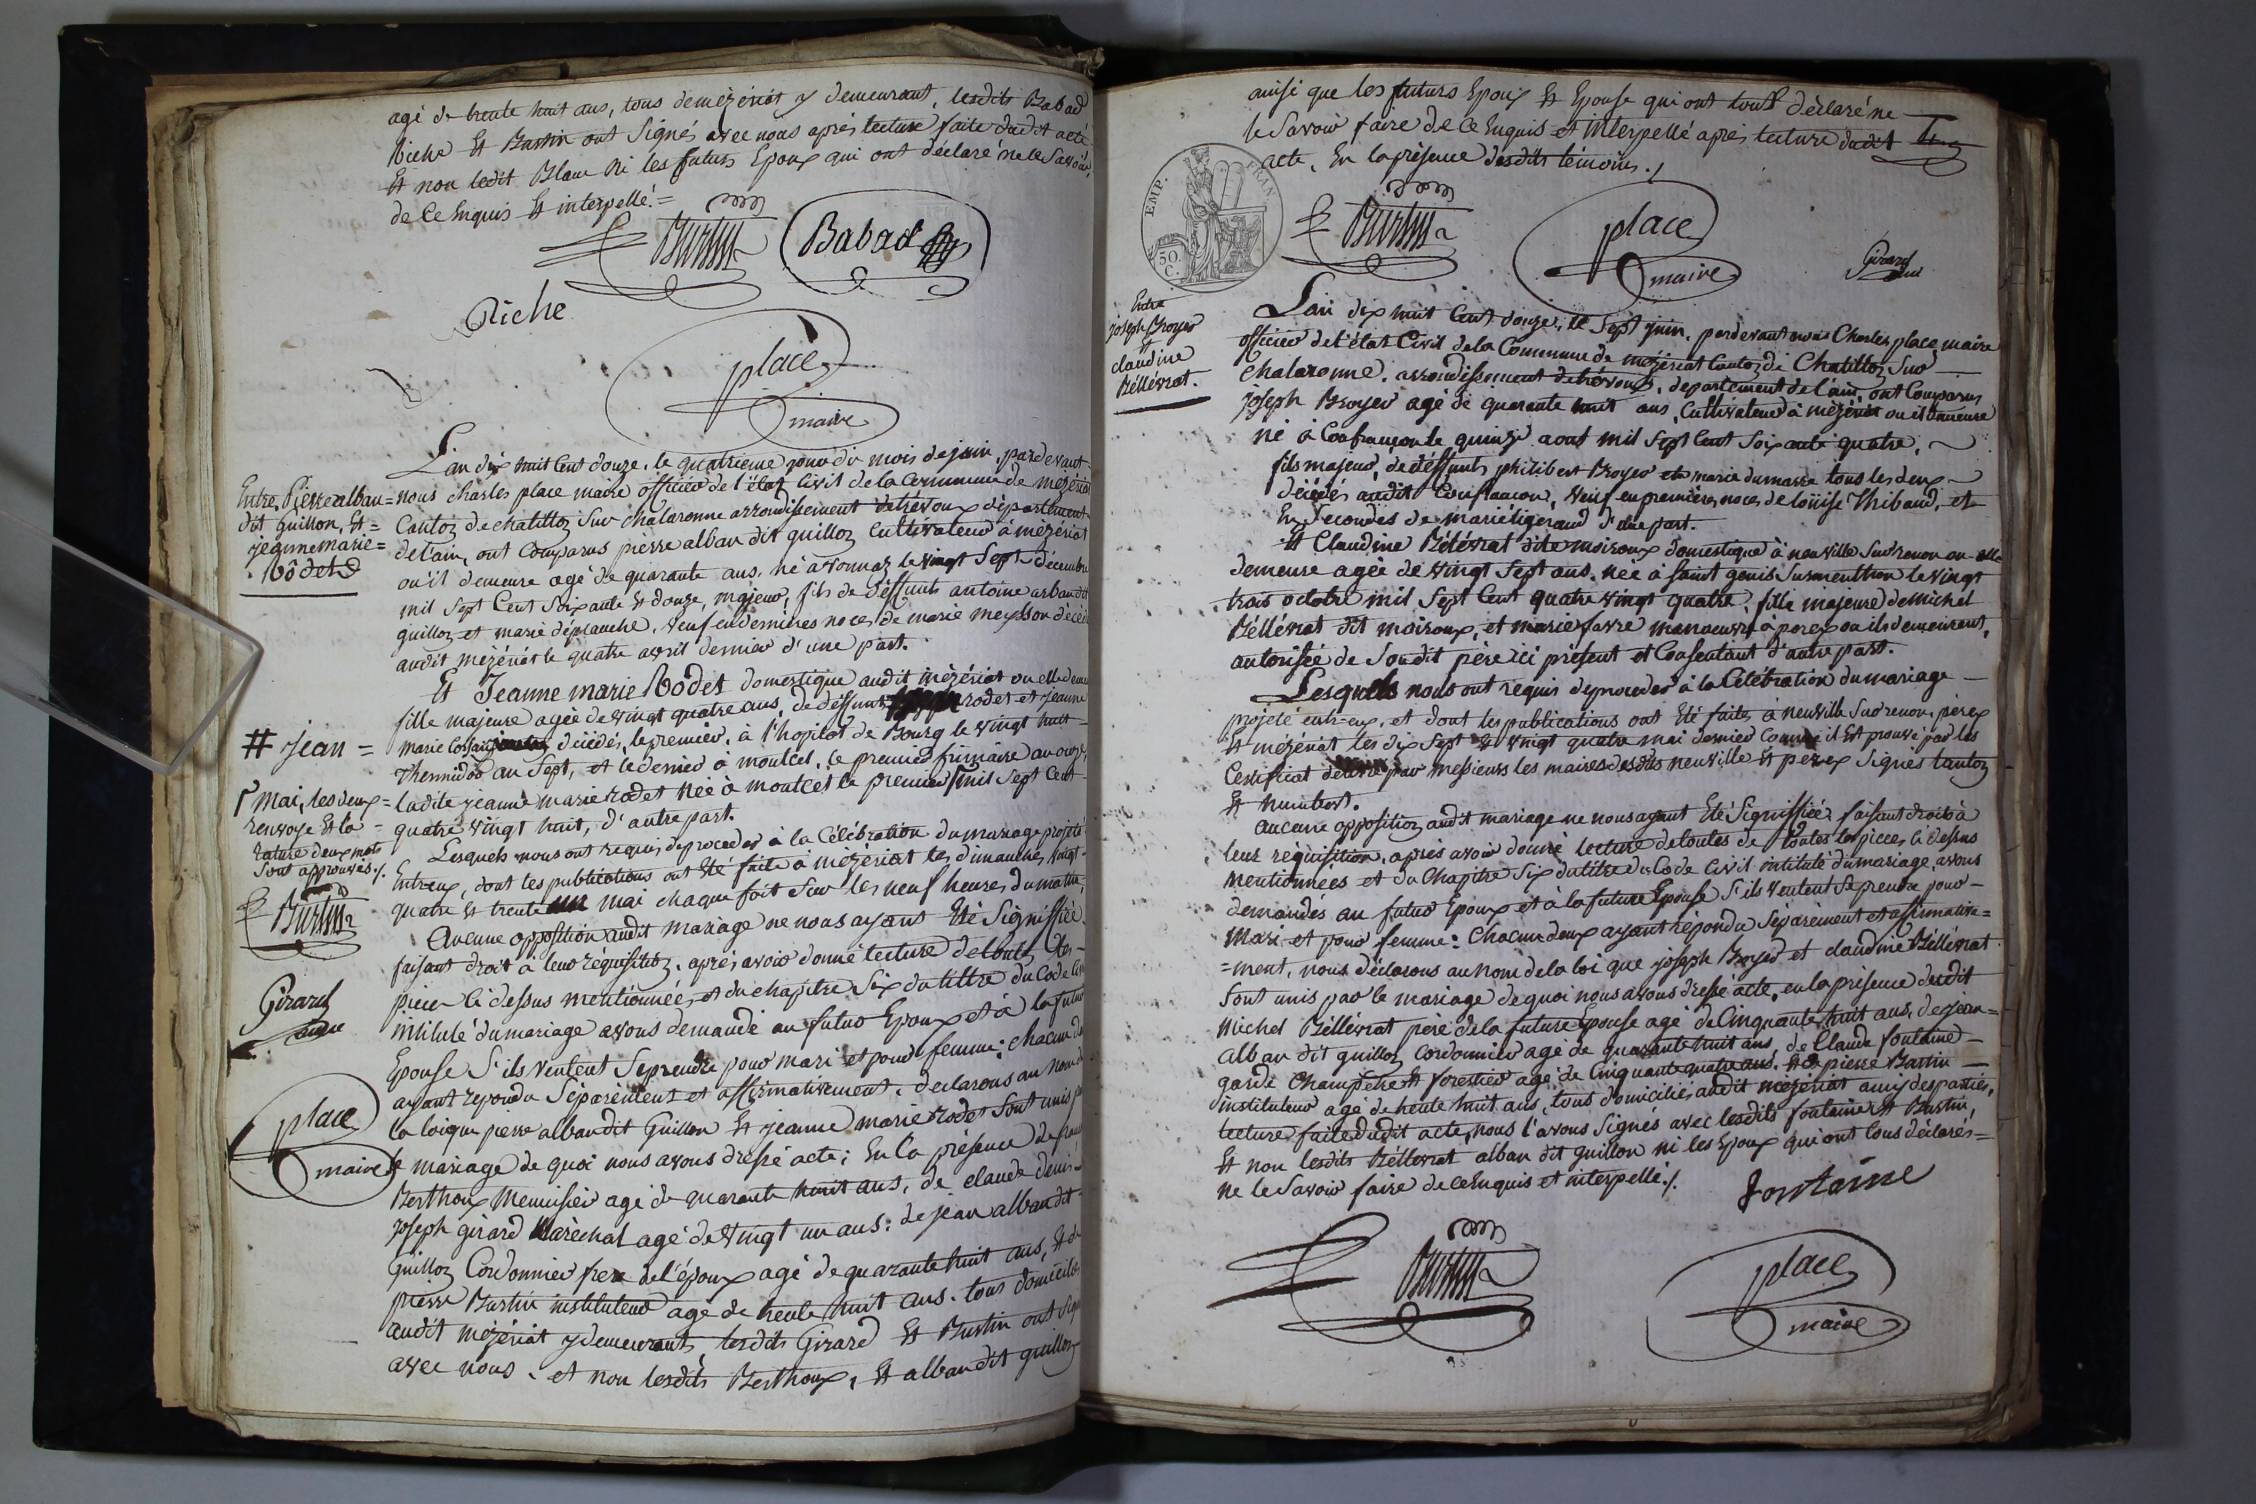 agé de trente huit ans, tous demézériat y demeurant, lesdits Babad
Riche Et Burtin ont Signés avec nous aprés lecture faite dudit acte
Et non ledit Blanc Ni les futurs Epoux qui ont déclaré ne le Savoir,
de Ce Enquis Et interpellé.=
Burtin
Babad
Riche
place
maire
L'an dix huit Cent douze, le quatrieme jour du mois de juin, pardevant
Entre Pierre alban =
dit Guillon, Et =
jeanne marie =
Rôdet
nous charles place maire officier de l'état Civil de la Commune de mézériat
Canton de chatillon Sur chalaronne arrondissement detrévoux département
del'ain, ont Comparus pierre alban dit guillon Cultivateur à mézériat
ou il demeure agé de quarante ans, né à vonnaz le vingt Sept décembre
mil Sept Cent Soixante Et douze, majeur, fils de déffunts antoine arban dit
guillon et marie déplanche, Veuf en dernieres noces de marie meysson décédée
audit mézériat le quatre avril dernier d'une part.
Et Jeanne marie Rôdet domestique audit mézériat ou elle demeure
fille majeure agée de vingt quatre ans, de déffunt rodet et jeanne
# jean =
marie décédés, le premier, à l'hopital de Bourg le vingt huit
Thermidor an Sept, et le dernier à montcet, le premier frimaire an onze,
ladite jeanne marie rodet Née à montcet le premier mil Sept Cent
quatre vingt huit, d'autre part.
Mai, les deux =
renvoye Et la =
rature deux mots
Sont approuvés ./.
Burtin
Girard
place
maire
Lesquels nous ont requis de proceder à la Célébration du mariage projeté
Entreux, dont les publications ont Eté faite à mézériat les dimanches vingt-
quatre Et trente un mai chaque fois Sur les neuf heures du matin,
Aucune opposition audit mariage ne nous ayant Eté Signiffiée.
faisant droit à leur requisition. aprés avoir donné lecture de toutes les
pieces Ci dessus mentionnées, et du chapitre Six du tittre du Code Civil
intitulé du mariage avons demandé au futur Epoux et à la future
Epouse S'ils veulent Se prendre pour mari et pour femme: chacun d'eux
ayant repondu Séparément et affirmativement. declarons au Nom de
la loi que pierre alban dit Guillon Et jeanne marie rodet Sont unis par
le mariage de quoi nous avons dressé acte; En la présence de
Berthoux Menuisier agé de quarante huit ans, de claude denis
joseph girard Maréchal agé de vingt un ans: de jean alban dit
Guillon Cordonnier frere del'époux agé de quarante huit ans, Et de
pierre Burtin instituteur agé de trente huit ans. tous domiciliés
audit mézériat y demeurants, lesdits Girard Et Burtin ont Signé
avec nous. et non lesdits Berthoux, Et alban dit guillon
ainsi que les futurs Epoux Et Epouse qui ont tous déclaré ne
le Savoir faire de Ce Enquis et interpellé aprés lecture dudit
acte, En la présence desdits témoins./
EMP. FRAN.
50.
C.
Burtin
place
maire
Girard
Entre
joseph Broyer
Et
claudine
Béllévrat.
L'an dix huit Cent douze, le Sept juin, pardevant nous Charles place maire
officier de l'état Civil de la Commune de mézériat Canton de Chatillon Sur
Chalaronne, arrondissement detrévoux, departement de l'ain, ont Comparus
joseph Broyer agé de quarante huit ans, Cultivateur à mézériat ou il demeure
né à Confrançon le quinze aout mil Sept Cent Soixante quatre,
fils majeur, de déffunts philibert Broyer et marie dumarre tous les deux
décédés audit Confrancon, Veuf en premieres noces de louise Thibaud, et
En Secondes de marie ligeraud d'une part.
Et Claudine Béllévrat dite moiroux domestique à neuville Sur renon ou elle
demeure agée de vingt Sept ans, née à Saint genis Sur menthon le vingt
trois octobre mil Sept Cent quatre vingt quatre, fille majeure de michel
Béllévrat dit moiroux, et marie favre manoeuvres à perex ou ils demeurant,
autorisée de Son dit père ici présent et Consentant d'autre part.
Lesquels nous ont requis de proceder à la Célébration du mariage
projeté entr-eux, et dont les publications ont Eté faites à neuville Sur renon, perex
Et mézériat les dix Sept Et vingt quatre mai dernier Comme il Est prouvé par les
Certificat délivré par messieurs les maires desdits neuville Et perex Signés tanton
Et humbert.
aucune opposition audit mariage ne nous ayant Eté Signiffiée, faisant droit à
leur réquisition, aprés avoir donné lecture de toutes de toutes les pieces Ci dessus
mentionnées et du Chapitre Six du titre du Code Civil intitulé du mariage, avons
demandés au futur Epoux et à la future Epouse S'ils veulent Se prendre pour
Mari et pour femme: Chacun deux ayant répondu Séparément et affirmative=
=ment, nous déclarons au Nom de la loi que joseph Broyer et claudine Béllévrat
Sont unis par le mariage de quoi nous avons dressé acte, en la présence dudit
Michel Béllévrat pére de la future Epouse agé de Cinquante huit ans, de jean=
alban dit guillon Cordonnier agé de quarante huit ans, de Claude fontaine
garde Champétre Et forestier agé de Cinquante quatre ans. Et de pierre Burtin
instituteur agé de trente huit ans, tous domiciliés audit mézériat amis des parties,
lecture faite dudit acte, nous l'avons Signés avec lesdits fontaine Et Burtin,
Et non lesdits Béllévrat alban dit guillon ni les Epoux qui ont tous déclarés=
ne le Savoir faire de Ce Enquis et interpellé./.
fontaine
Burtin
place
maire